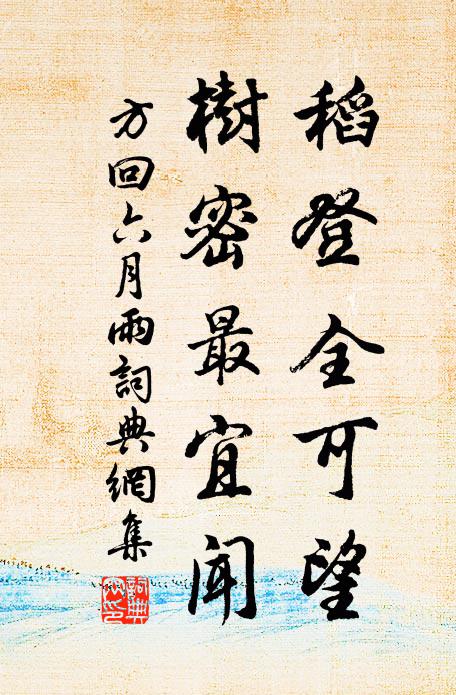 稻登全可望
樹密最宜聞
方回六月雨詞典網集